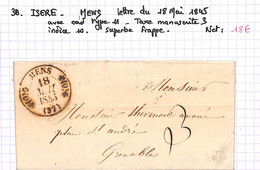 38. ISERE - MENS lettre du 18 Mai 1845
avec cad type 11 - Taxe manuscrite 3
indice 10. superbe frappe. Net : 18€
MENS
18
MAI
1845
(37)
Monsieur
Monsieur
place St andré
Grenoble
3